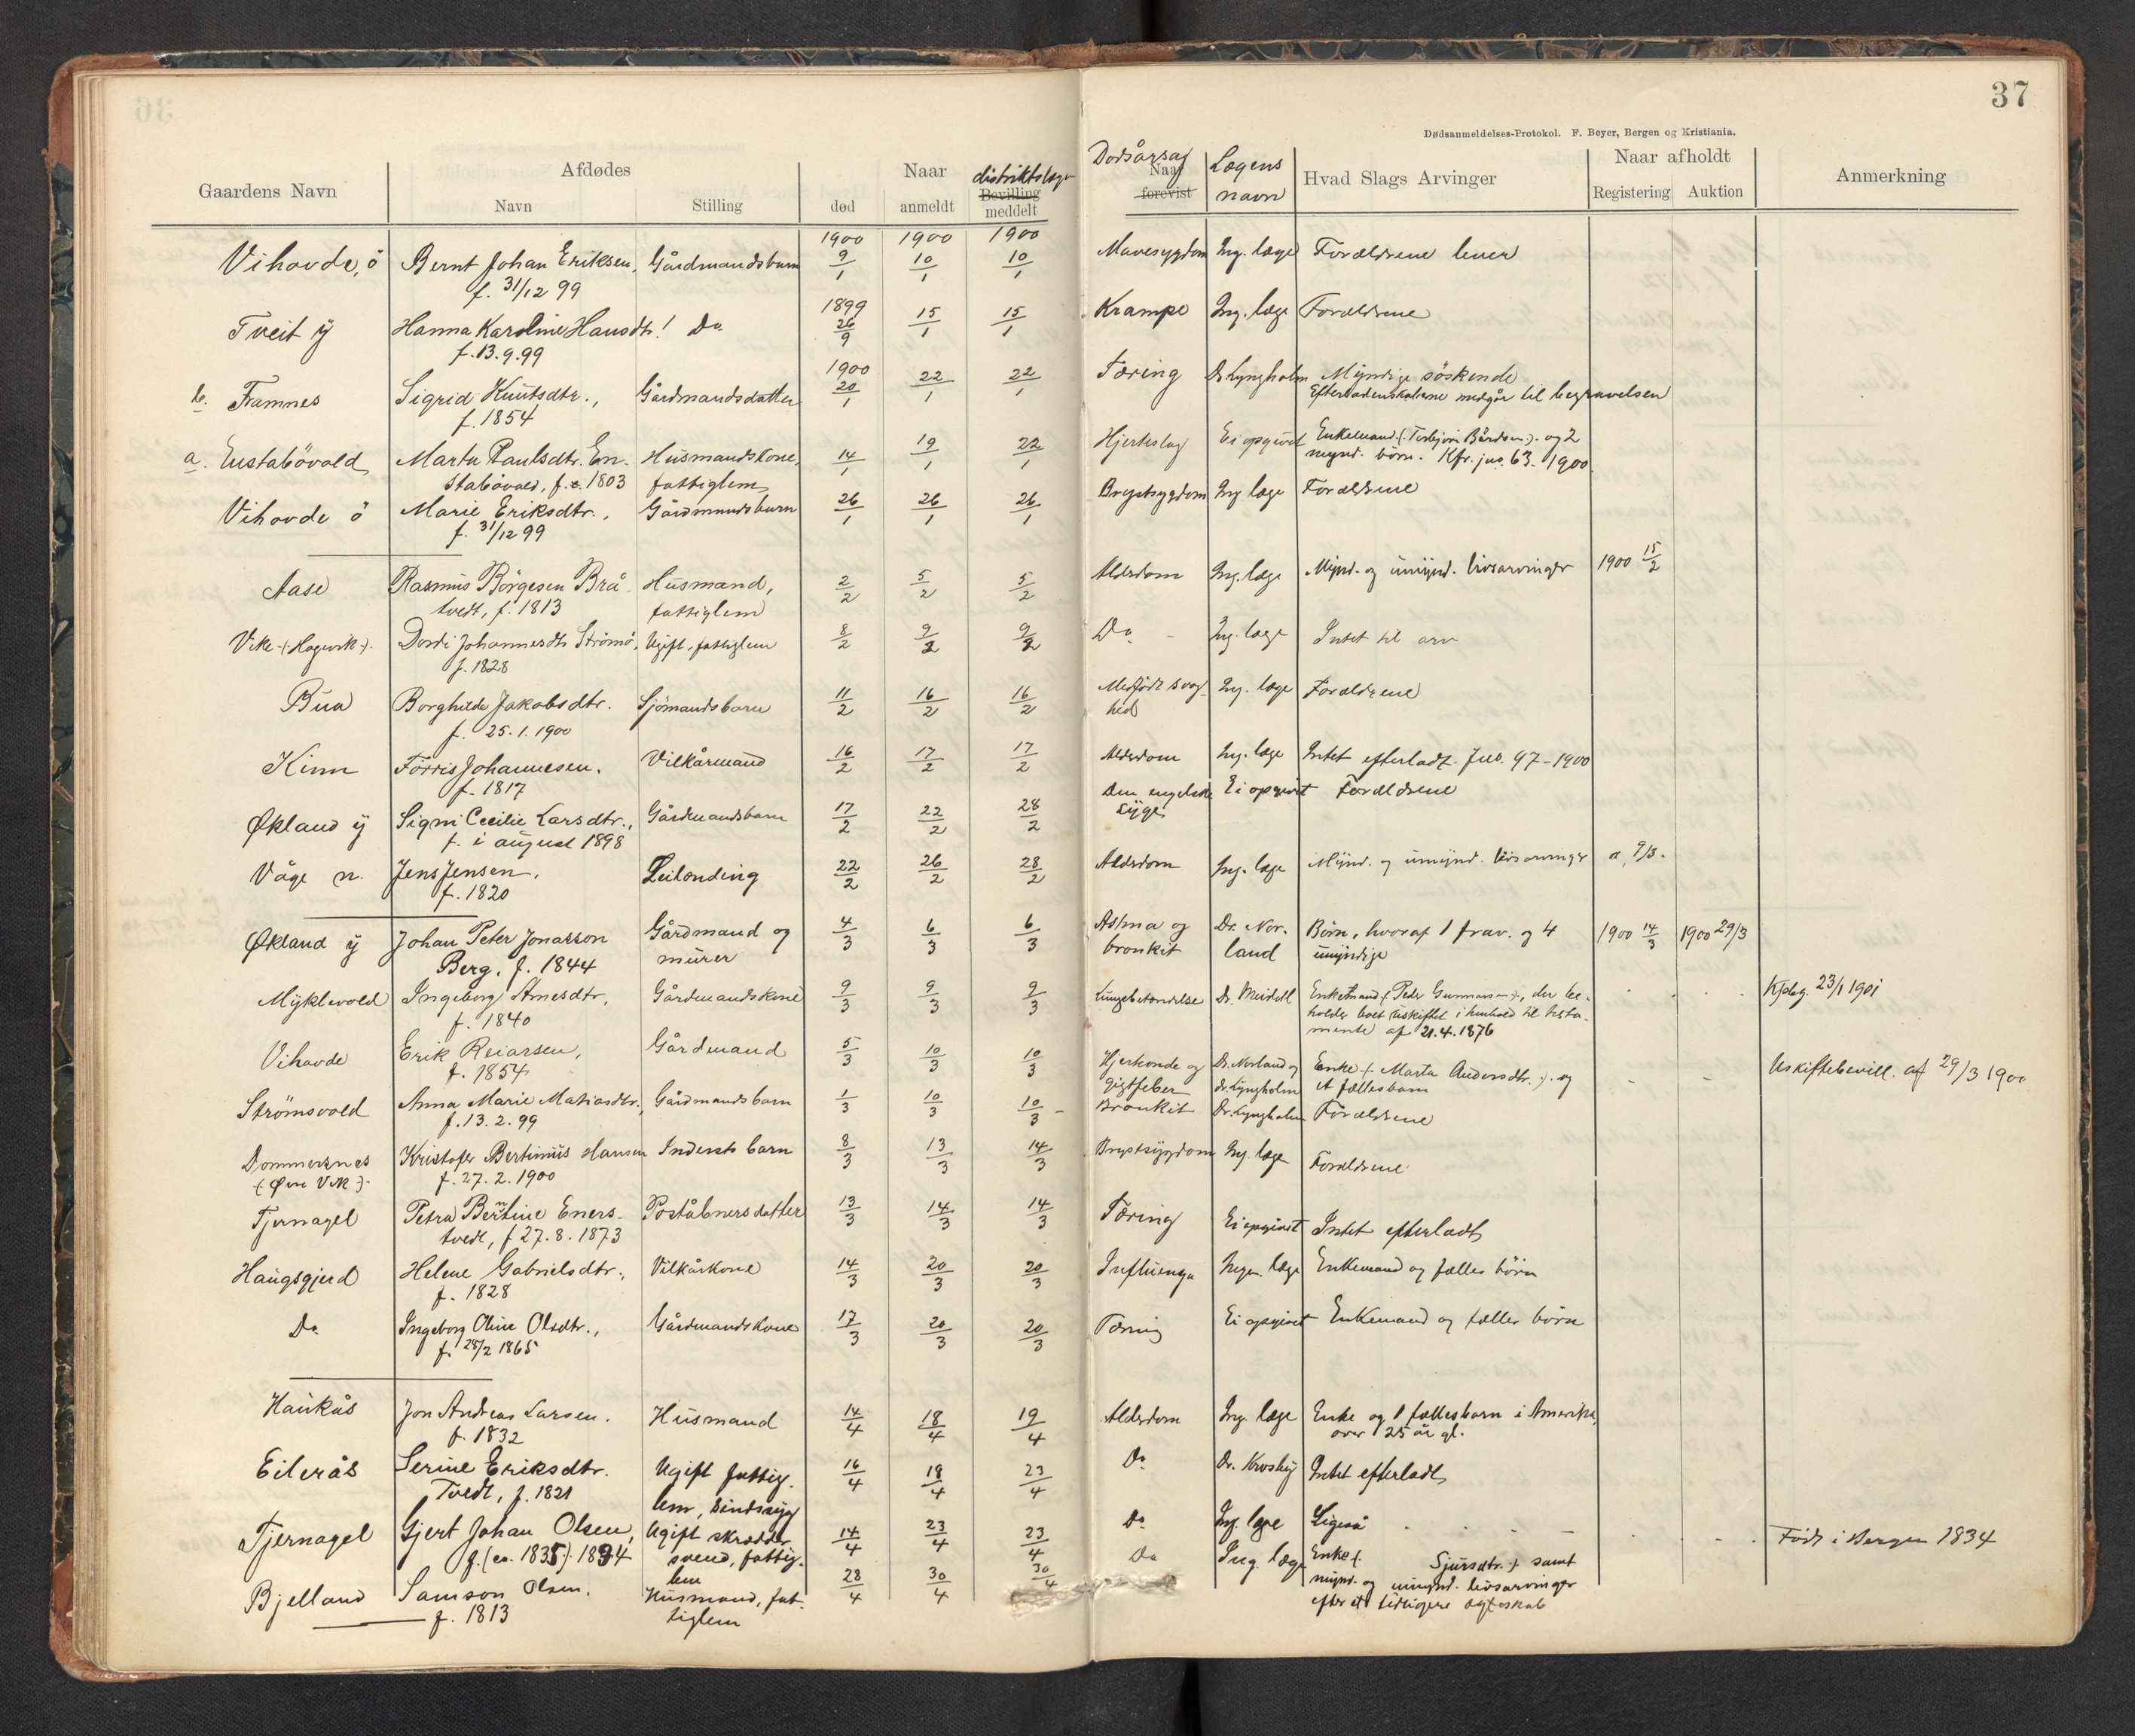 37
Dødsanmeldelses-Protokol. F. Beyer, Bergen og Kristiania.
Gaardens Navn
Afdødes
Navn
Stilling
Naar
død
anmeldt
distriktslæge
Bevilling
meddelt
Dødsårsag
Naar
forevist
Lægens
navn
Hvad Slags Arvinger
Naar afholdt
Registering
Auktion
Anmerkning
1900 1900 1900
Vihovde, ö Bernt Johan Eriksen, Gårdmandsbarn 9/1 10/1 10/1 Mavesygdom Ing. læge Forældrene lever
f. 31/12 99
1899
Tveit y Hanna Karoline Hansdtr! Do 26/9 15/1 15/1 Krampe Ing. læge Forældrene
f. 13.9.99
1900
b. Framnes Sigrid Knutsdtr., Gårdmandsdatter 20/1 22/1 22/1 Tæring Dr Lyngholm Myndige söskende
f. 1854 Efterladenskaberne medgår til begravelsen
a. Enstabövold Marta Paulsdtr. En- Husmandskone, 14/1 19/1 22/1 Hjerteslag Ei opgivet Enkemand (Torbjörn Bårdsen) og 2
stabövold, f. c. 1803 fattiglem mynd. börn. Kfr. jno. 63. 1900.
Vihovde ö Marie Eriksdtr., Gårdmandsbarn 26/1 26/1 26/1 Brystsygdom Ing læge Forældrene
f. 31/12 99
Aase Rasmus Börgesen Brå- Husmand, 2/2 5/2 5/2 Alderdom Ing. læge Mynd. og umynd. livsarvinger 1900 15/2
tvedt, f. 1813 fattiglem
Vike (Hagevik) Dordi Johannesdtr Strömö, Ugift, fattiglem 8/2 9/2 9/2 Do Ing. læge Intet til arv
f. 1828
Bua Borghilde Jakobsdtr. Sjömandsbarn 11/2 16/2 16/2 Medfödt svag- Ing. læge Forældrene
f. 25.1.1900 hed
Kinn Törris Johannesen. Vilkårmand 16/2 17/2 17/2 Alderdom Ing. læge Intet efterladt. Jno. 97-1900
f. 1817
Økland y Signi Cecilie Larsdtr., Gårdmandsbarn 17/2 22/2 28/2 Den engelske Ei opgivet Forældrene
f. i august 1898 syge
Våge n. Jens Jensen, Leilending 22/2 26/2 28/2 Alderdom Ing. læge Mynd. og umynd. livsarvinger a. 9/3.
f. 1820
Økland y Johan Peter Jonasson Gårdmand og 4/3 6/3 6/3 Astma og Dr. Nor- Börn, hvoraf 1 frav. og 4 1900 14/3 1900 29/3
Berg, f. 1844 murer bronkit land umyndige
Myklevold Ingeborg Arnesdtr, Gårdmandskone 9/3 9/3 9/3 Lungebetændelse Dr. Meidell Enkemand (Peder Gunnarsen), der be-
f. 1840 holder boet uskiftet i henhold til testa-
mente af 21.4.1876 Kfdbg. 23/1 1901
Vihovde Erik Reiarsen, Gårdmand 5/3 10/3 10/3 Hjertonde og Dr. Norland og Enke (Marta Andersdtr.) og - - Uskiftebevill. af 29/3 1900
f. 1854 gigtfeber dr. Lyngholm et fællesbarn
Strömsvold Anna Marie Matiasdtr., Gårdmandsbarn 1/3 10/3 10/3 Bronkit Dr. Lyngholm Forældrene
f. 13.2.99
Dommersnes Kristofer Bertinius Hansen Inderstsbarn 8/3 13/3 14/3 Brystsygdom Ing. læge Forældrene
(Øvre Vik) f. 27.2.1900
Tjernagel Petra Berntine Eners- Poståbnersdatter 13/3 14/3 14/3 Tæring Ei opgivet Intet efterladt
tvedt, f 27.8.1873
Haugsgjerd Helene Gabrielsdtr., Vilkårkone 14/3 20/3 20/3 Influenza Ingen læge Enkemand og fælles börn
f. 1828
Do Ingeborg Oline Olsdtr., Gårdmandskone 17/3 20/3 20/3 Tæring Ei opgivet Enkemand og fælles börn
f. 28/2 1865
Haukås Jon Andreas Larsen. Husmand 14/4 18/4 19/4 Alderdom Ing. læge Enke og 1 fællesbarn i Amerika,
f. 1832 over 25 år gl.
Eilerås Serine Eriksdtr. Ugift fattig- 16/4 18/4 23/4 Do Dr. Krosby Intet efterladt
Tvedt, f. 1821 lem, sindssyg
Tjernagel Gjert Johan Olsen, Ugift skrædder- 14/4 23/4 23/4 Do Ing. læge Ligeså Födt i Bergen 1834
f. (ca. 1835) 1834 svend, fattig-
lem
Bjelland Samson Olsen. Husmand, fat- 28/4 30/4 30/4 Do Ing. læge Enke ( Sjursdtr.) samt
f. 1813 tiglem mynd. og umynd. livsarvinger
efter et tidligere ægteskab